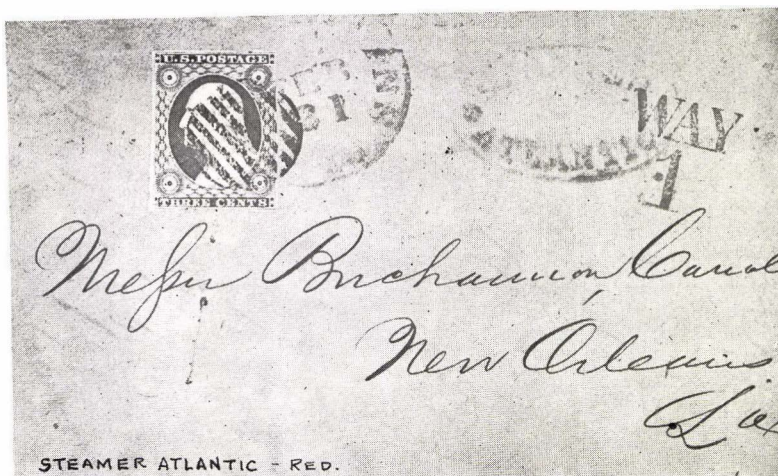 U.S. POSTAGE
THREE CENTS
31
ATLANTIC
WAY
1
Messrs Buchannon, Carrol
New Orleans
La
STEAMER ATLANTIC - RED.